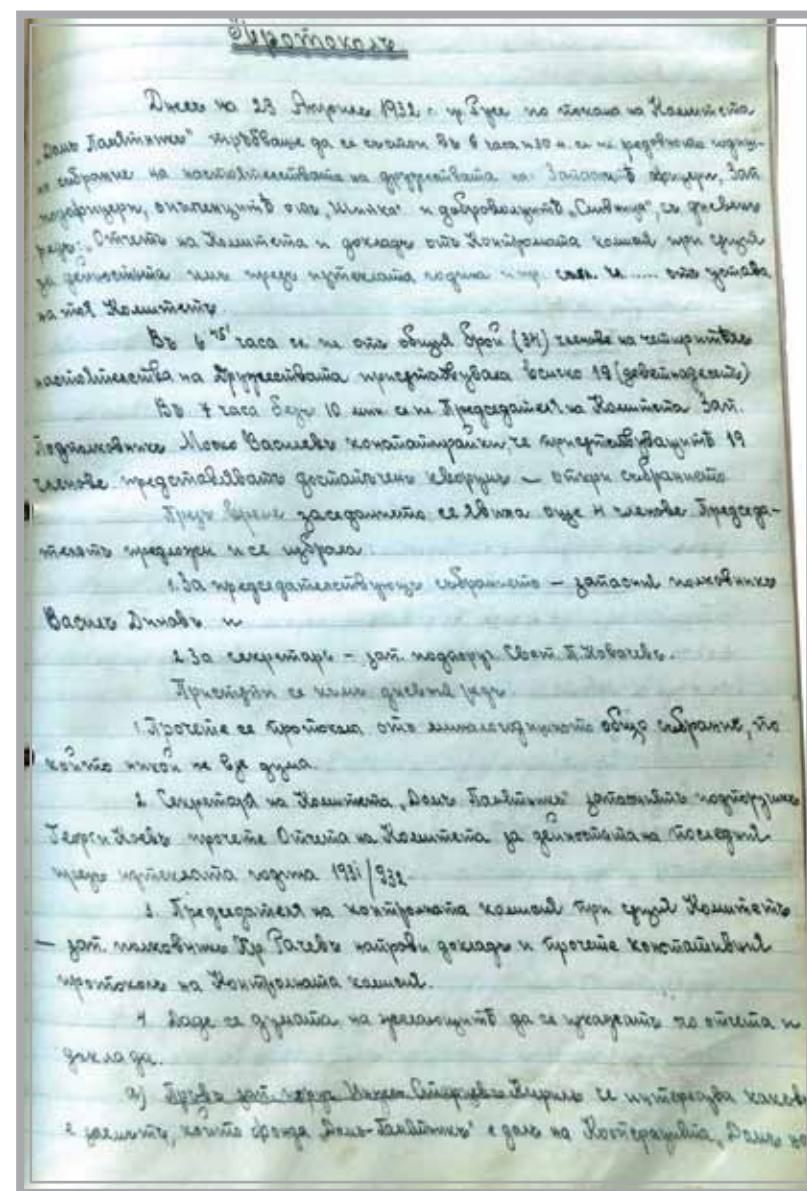 Протоколъ
Днесь на 23 Априлъ 1932 г. гр. Русе по покана на Комитета
„Домъ Паметникъ" трѣбваше да се състои въ 6 часа и 30 м. сл. пл. редовното годиш-
но събрание на настоятелствата на дружествата на Запаснитѣ офицери, Зап.
подофицери, опълченцитѣ отъ „Шипка" и доброволцитѣ „Сливница", съ дневенъ
редъ: Отчетъ на Комитета и докладъ отъ Контролната комисия при сѫщия
за дейностьта имъ презъ изтеклата година и пр. съгл. чл. ..... отъ устава
на тоя Комитетъ.
Въ 6 45 часа сл. пл. отъ общия брой (34) членове на четиритѣхъ
настоятелства на дружествата присѫтствуваха всичко 19 (деветнадесеть)
Въ 7 часа безъ 10 мин. сл. пл. Председателя на Комитета Зап.
Подполковникъ Василевъ констатирайки, че присѫтствуващитѣ 19
членове представляватъ достатъченъ кворумъ – откри събранието
Презъ време заседанието се явиха още 4 членове Председа-
тельтъ предложи и се избраха:
1. За председателствующъ събранието – запасния полковникъ
Василъ Диновъ и
2. За секретарь – зап. подпор. Свет. П. Ковачевъ.
Пристѫпи се къмъ дневния редъ
1. Прочете се протокола отъ миналогодишното общо събрание, по
който никой не взе дума.
2. Секретаря на Комитета „Домъ Паметникъ" запасниятъ подпоручикъ
Георги прочете Отчета на Комитета за дейностьта на последния
презъ изтеклата година 1931/932
3. Председателя на контролната комисия при сѫщия Комитетъ
– зап. полковникъ Кр. Рачевъ направи докладъ и прочете констативния
протоколъ на Контролната комисия.
4. Даде се думата на желающитѣ да се изкажатъ по отчета и
доклада.
а) Пръвъ зап. поруч. Кирилъ се интересува какъвъ
е заемътъ, който фонда „Домъ-Паметникъ" е далъ на Кооперацията „Домъ на